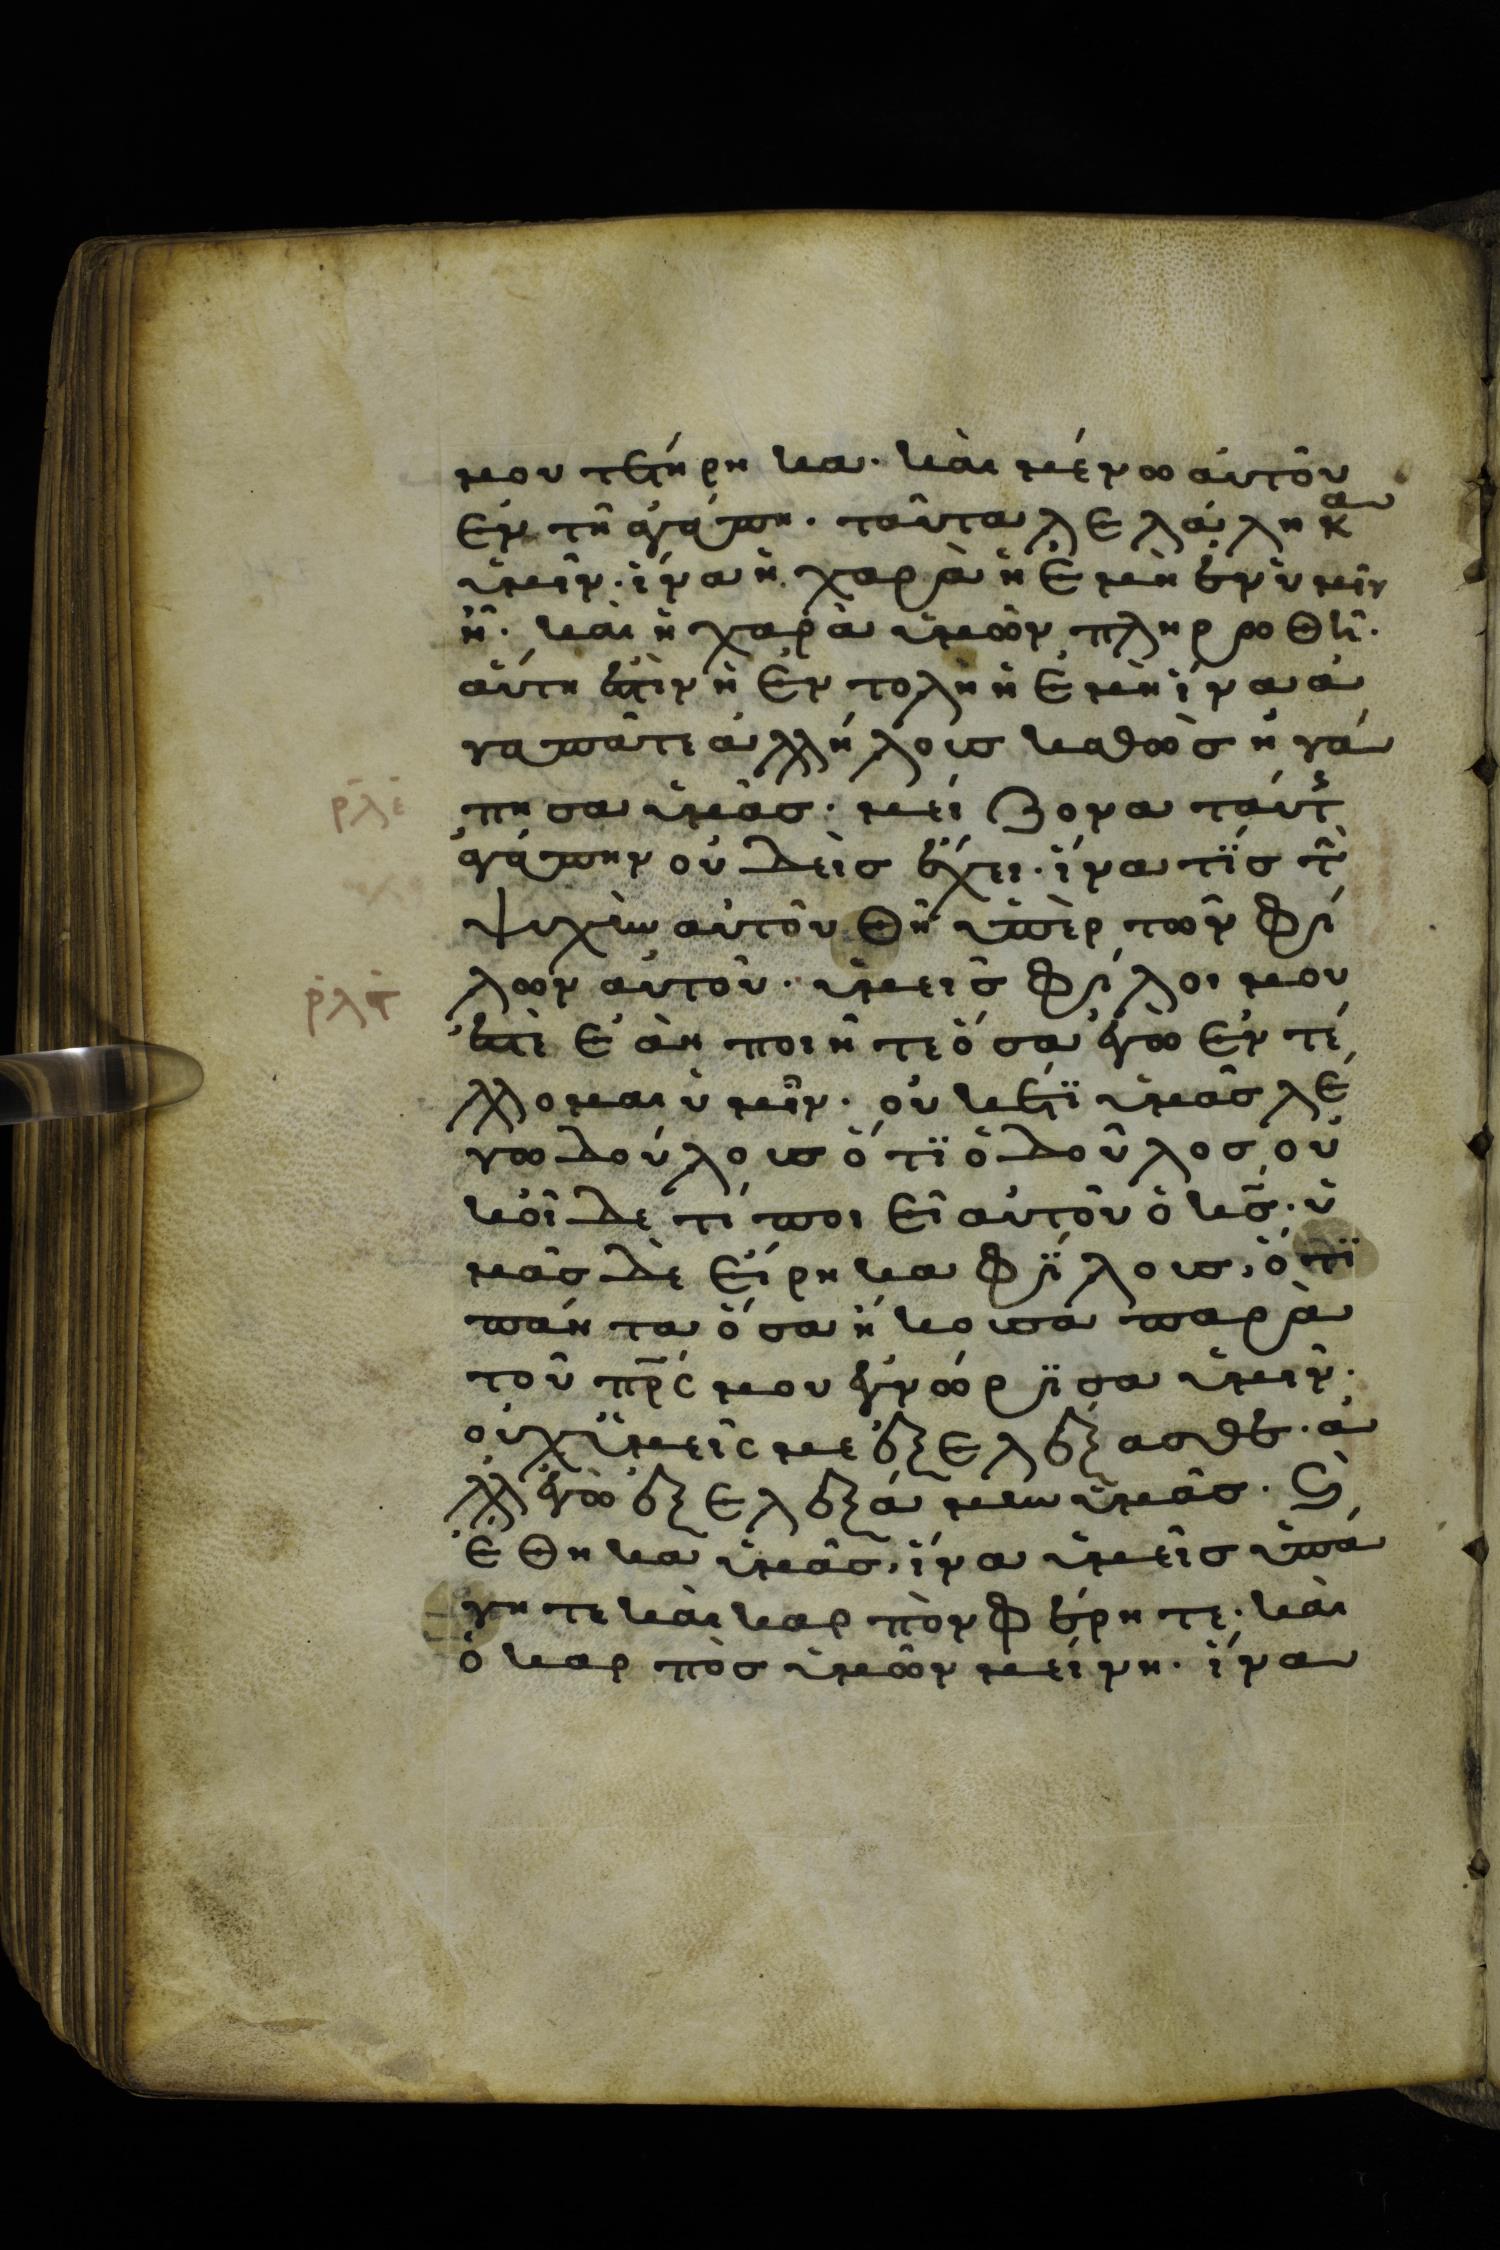 μου τετήρηκα· καὶ μένω αὐτοῦ
ἐν τῇ ἀγάπη· ταῦτα λελάληκα
ὑμῖν· ἵνα ἡ χαρὰ ἡ ἐμὴ ἐν ὑμῖν
ἦ· καὶ ἡ χαρὰ ὑμῶν πληρωθῆ·
αὕτη ἐστὶν ἡ ἐντολὴ ἡ ἐμὴ ἵνα ἀ
γαπᾶτε ἀλλήλους καθὼς ἠγά
ρλε
πησα ὑμᾶς· μείζονα ταύτ
ἀγάπην οὐδεὶς ἔχει· ἵνα τϊς τ
ψυχὴν αὐτοῦ θῆ ὑπὲρ τῶν φί
ρλϛ
λων αὐτοῦ· ὑμεῖς φίλοι μου
ἐστὲ ἐὰν ποιῆτε ὅσα ἐγὼ ἐντέ
λλομαι ὑμῖν· οὐκετϊ ὑμᾶς λέ
γω δούλους ὅτϊ ὁ δοῦλος οὐ
κ οἶδε τί ποιεῖ αὐτοῦ ὁ κς· ὑ
μᾶς δὲ εἴρηκα φϊλους, ὅτϊ
πάντα ὅσα ἤκουσα παρὰ
τοῦ πρς μου ἐγνώρϊσα ὑμῖν·
οὐχ ὑμεῖς με ἐξελέξασθε· ἀ
λλ ἐγὼ ἐξελεξάμην ὑμᾶς· ϗ
ἔθηκα ὑμᾶς, ἵνα ὑμεῖς ὑπά
γητε καὶ καρπὸν φέρητε· καὶ
ὁ καρπὸς ὑμῶν μείνη· ἵνα